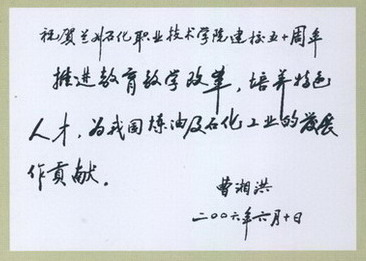 祝贺兰州石化职业技术学院建校五十周年
推进教育教学改革，培养特色
人才，为我国炼油及石化工业的发展
作贡献。
曹湘洪
二〇〇六年六月十日